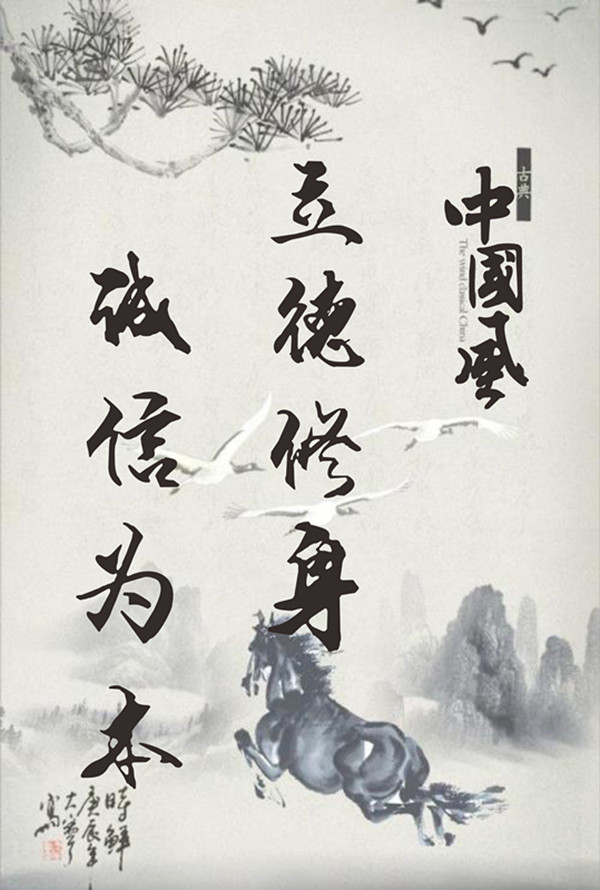 古典
中國風
The wind classical China
立德修身
诚信为本
時鮮
庚辰年